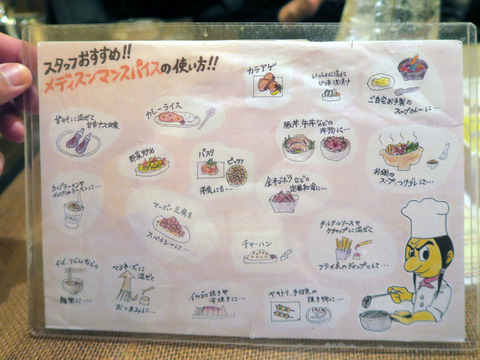 スタッフおすすめ!!
メディスンマンスパイスの使い方!!
カラアゲ
ご自宅お手製の
スープカレーに…
カレーライス
甘みそに混ぜて
豚丼、牛丼などの
丼物に…
野菜炒め
パスタ
ピッツァ
洋食にも…
お鍋の
スープ、ツクダレに…
カップラーメンや
インスタントラーメンに…
金平ゴボウなどの
定番和食に…
マーボー豆腐を
スパイシーに…
タルタルソースや
ケチャップに混ぜて
フライ系のディップとして…
チャーハン
そば、うどんなどの
麺類に…
マヨネーズに
混ぜて
おつまみに…
イカの姿焼きや
ヤキトリ、手羽先の
焼き物に…